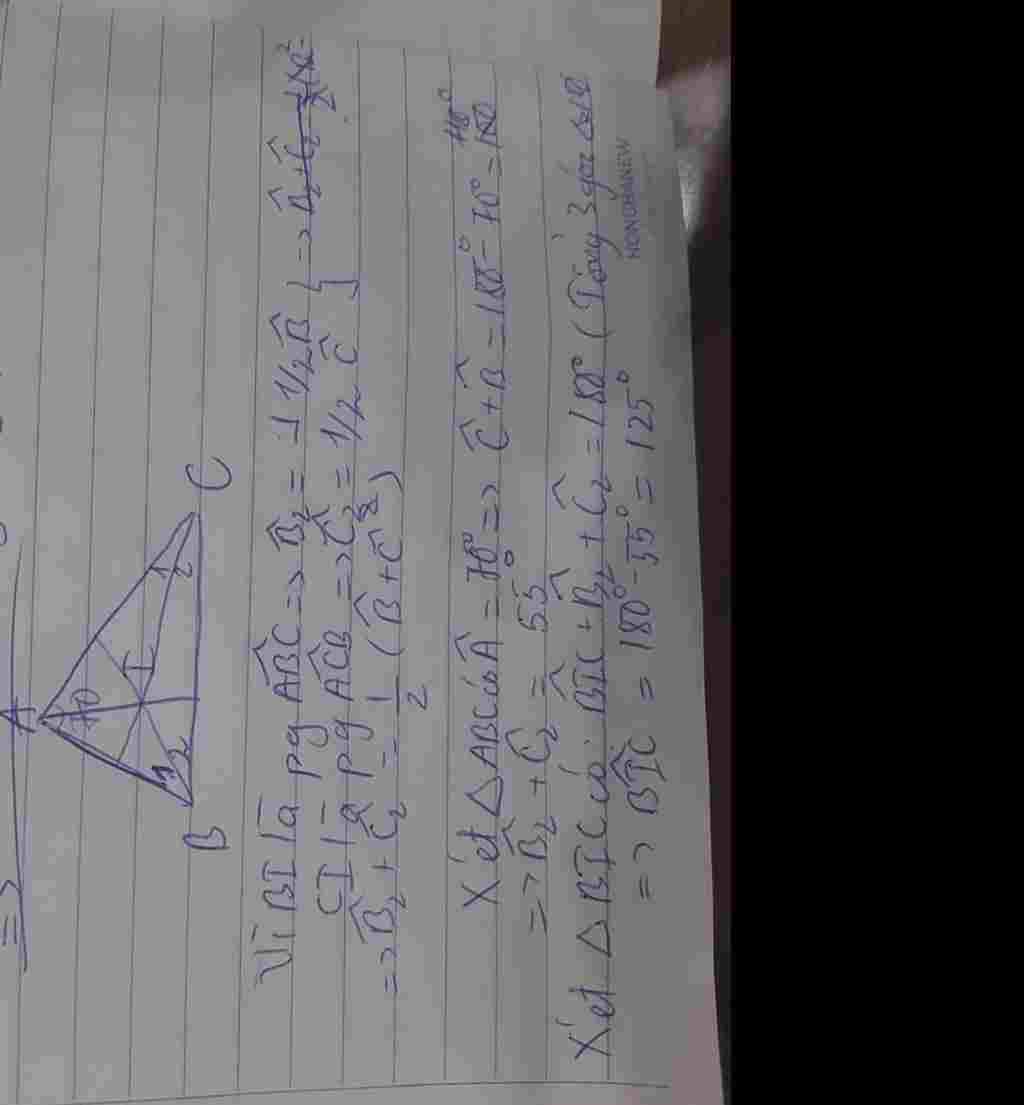 =>
A
70
I
1 2
1 2
B C
Vì BI là pg ABC => B̂₂ = 1/2 B̂ } =>
CI là pg ACB => Ĉ₂ = 1/2 Ĉ
=> B̂₂ + Ĉ₂ = 1/2 (B̂ + Ĉ)
Xét △ABC có Â = 70° => Ĉ + B̂ = 180° - 70° = 110°
=> B̂₂ + Ĉ₂ = 55°
Xét △BIC có: BIC + B̂₂ + Ĉ₂ = 180° (Tổng 3 góc
=> BIC = 180° - 55° = 125°
HONGHANEW